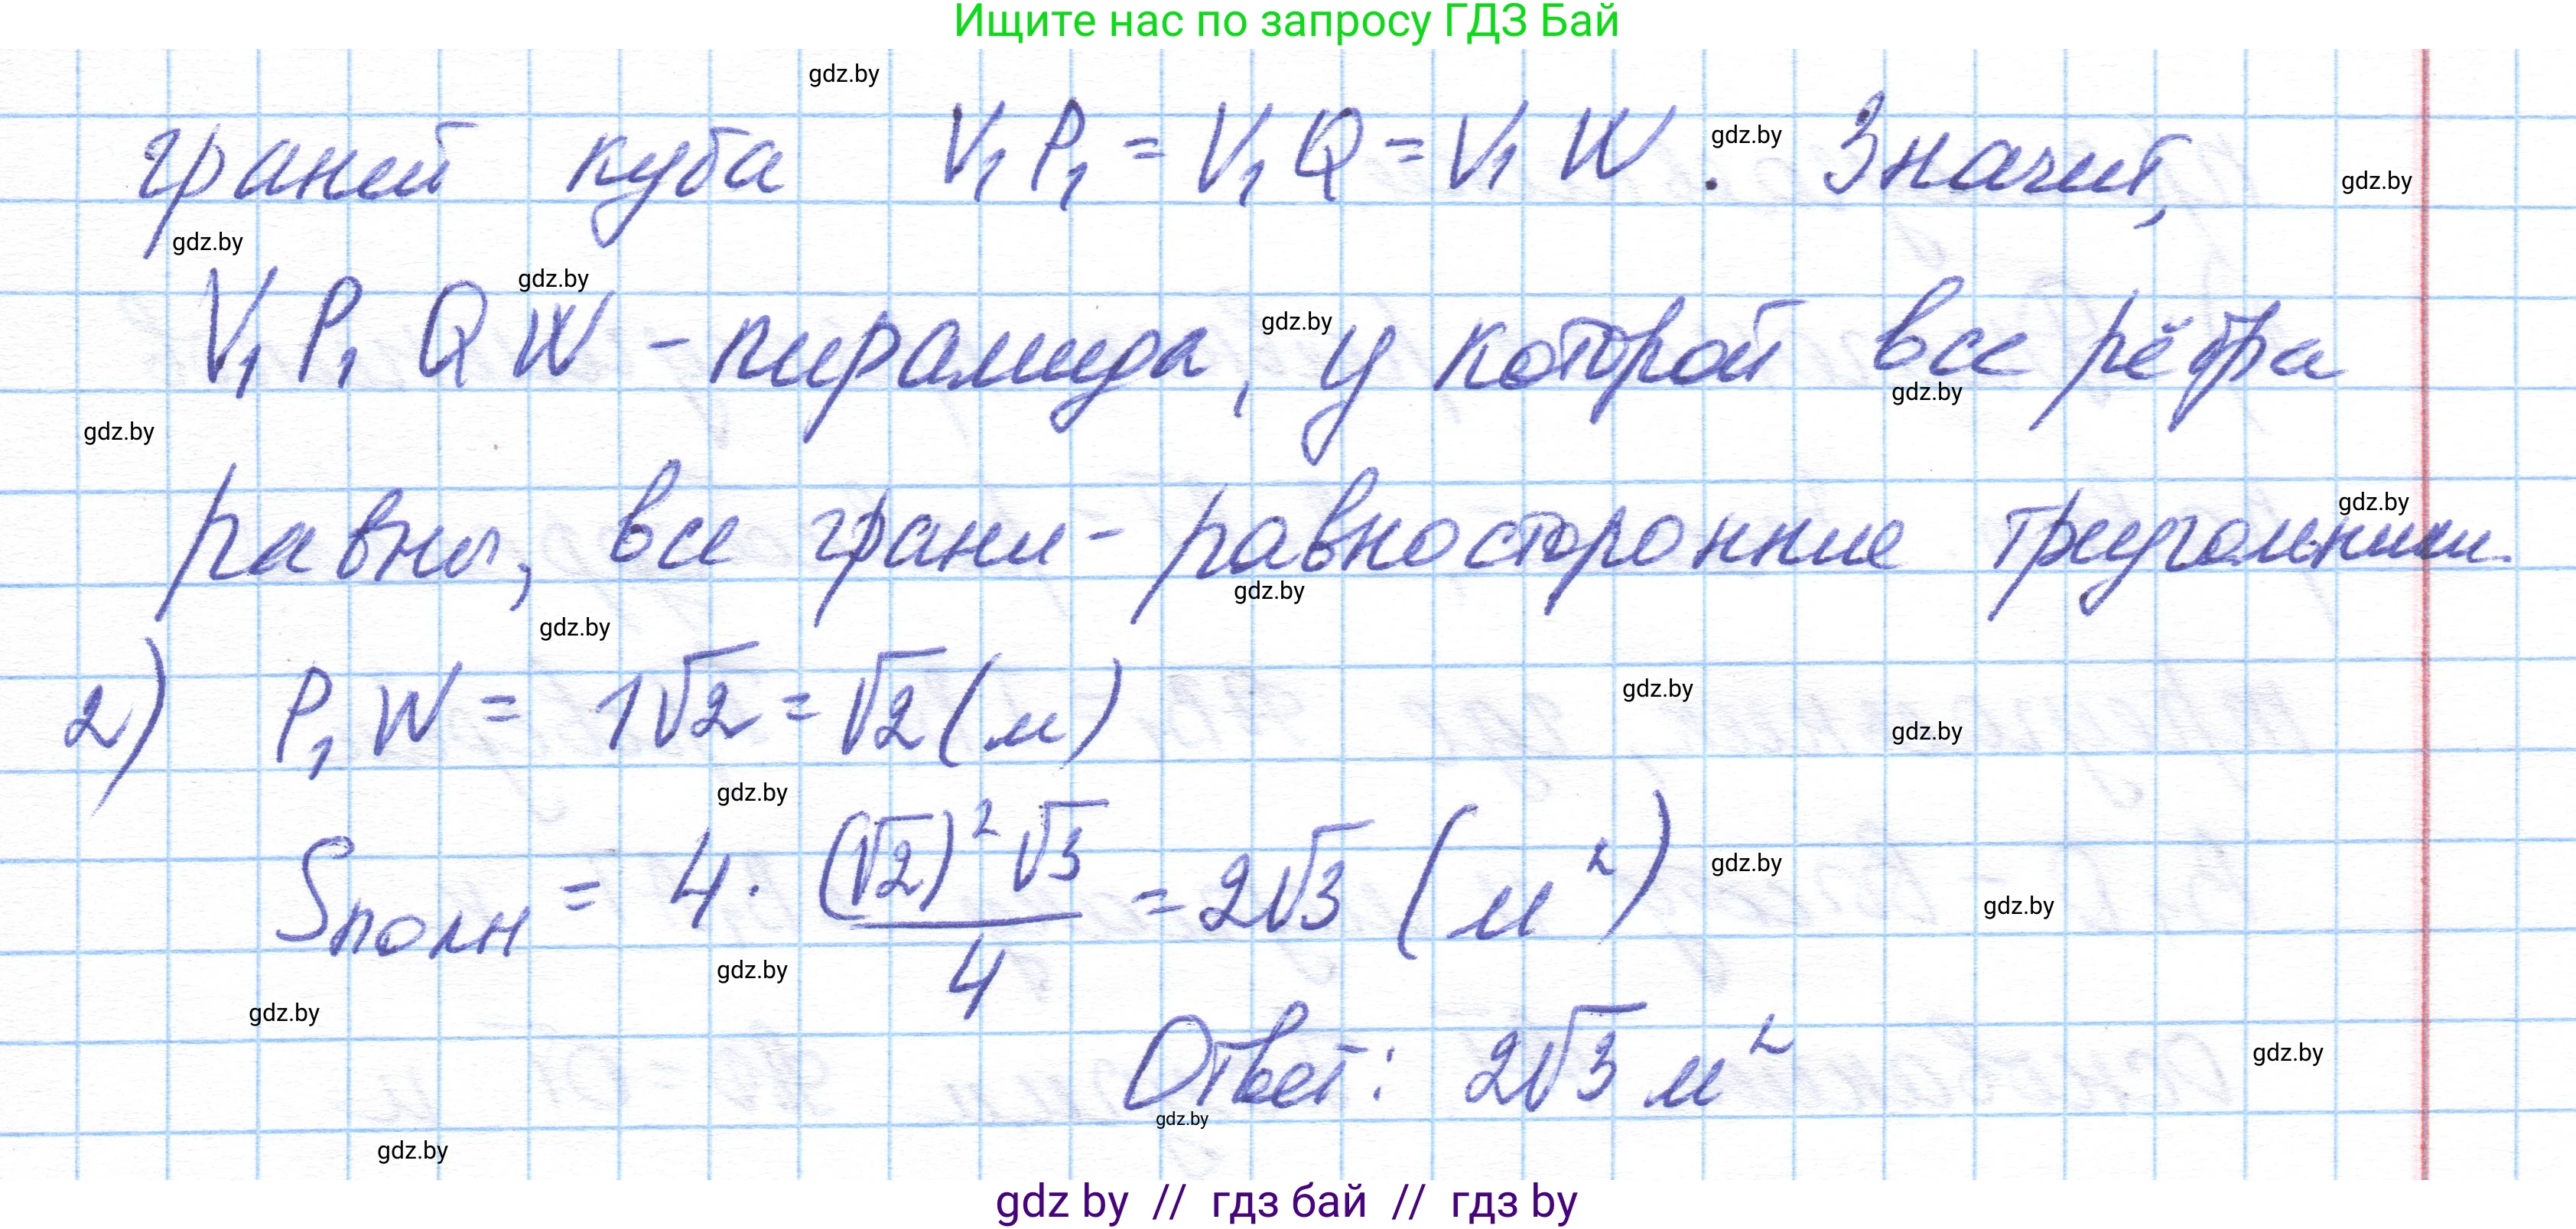 Ищите нас по запросу ГДЗ Бай
gdz.by
граней куба V₁P₁ = V₁Q = V₁W . Значит,
gdz.by
gdz.by
gdz.by
gdz.by
V₁P₁QW - пирамида, у которой все рёбра
gdz.by
gdz.by
gdz.by
равны, все грани - равносторонние треугольники.
gdz.by
gdz.by
gdz.by
2) P₁W = 1√2 = √2 (м)
gdz.by
gdz.by
gdz.by
Sполн = 4 · (√2)²√3 / 4 = 2√3 (м²)
gdz.by
gdz.by
gdz.by
gdz.by
Ответ: 2√3 м²
gdz.by
gdz.by
gdz.by
gdz by // гдз бай // гдз by